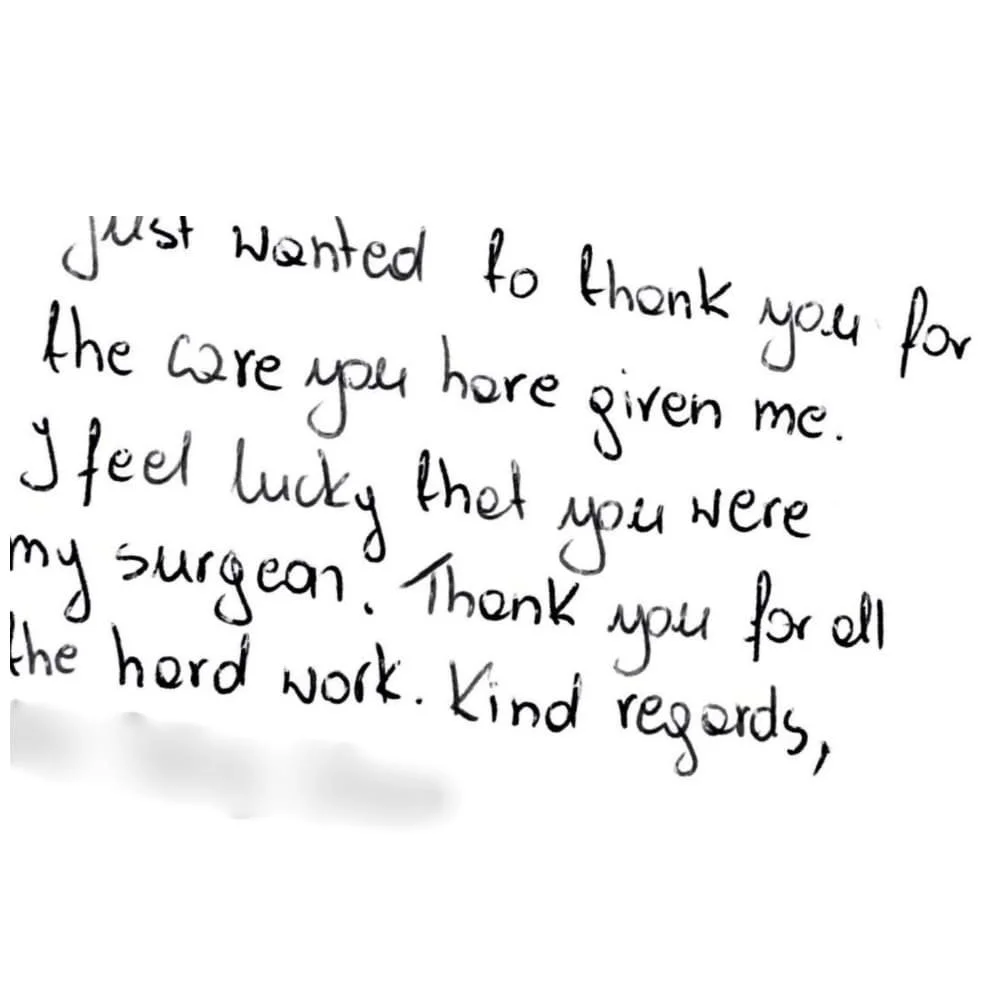 just wanted to thank you for
the care you have given me.
I feel lucky that you were
my surgeon. Thank you for all
the hard work. Kind regards,